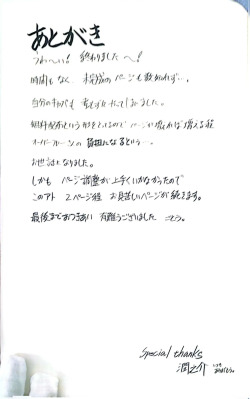 あとがき
うわ〜い！ 終わりました〜！
時間もなく、 のページも数が れず…、
自分の も せず してしまいました。
無料配布という形をとってるので ページが増えれば増える程
オーバーキャンの 負担になるという…。
お世話になりました。
しかも ページ調整が上手くいかなかったので
このアト 2ページ程 お見苦しいページが続きます。
最後までおつきあい 有難うございました
Special thanks
潤之介